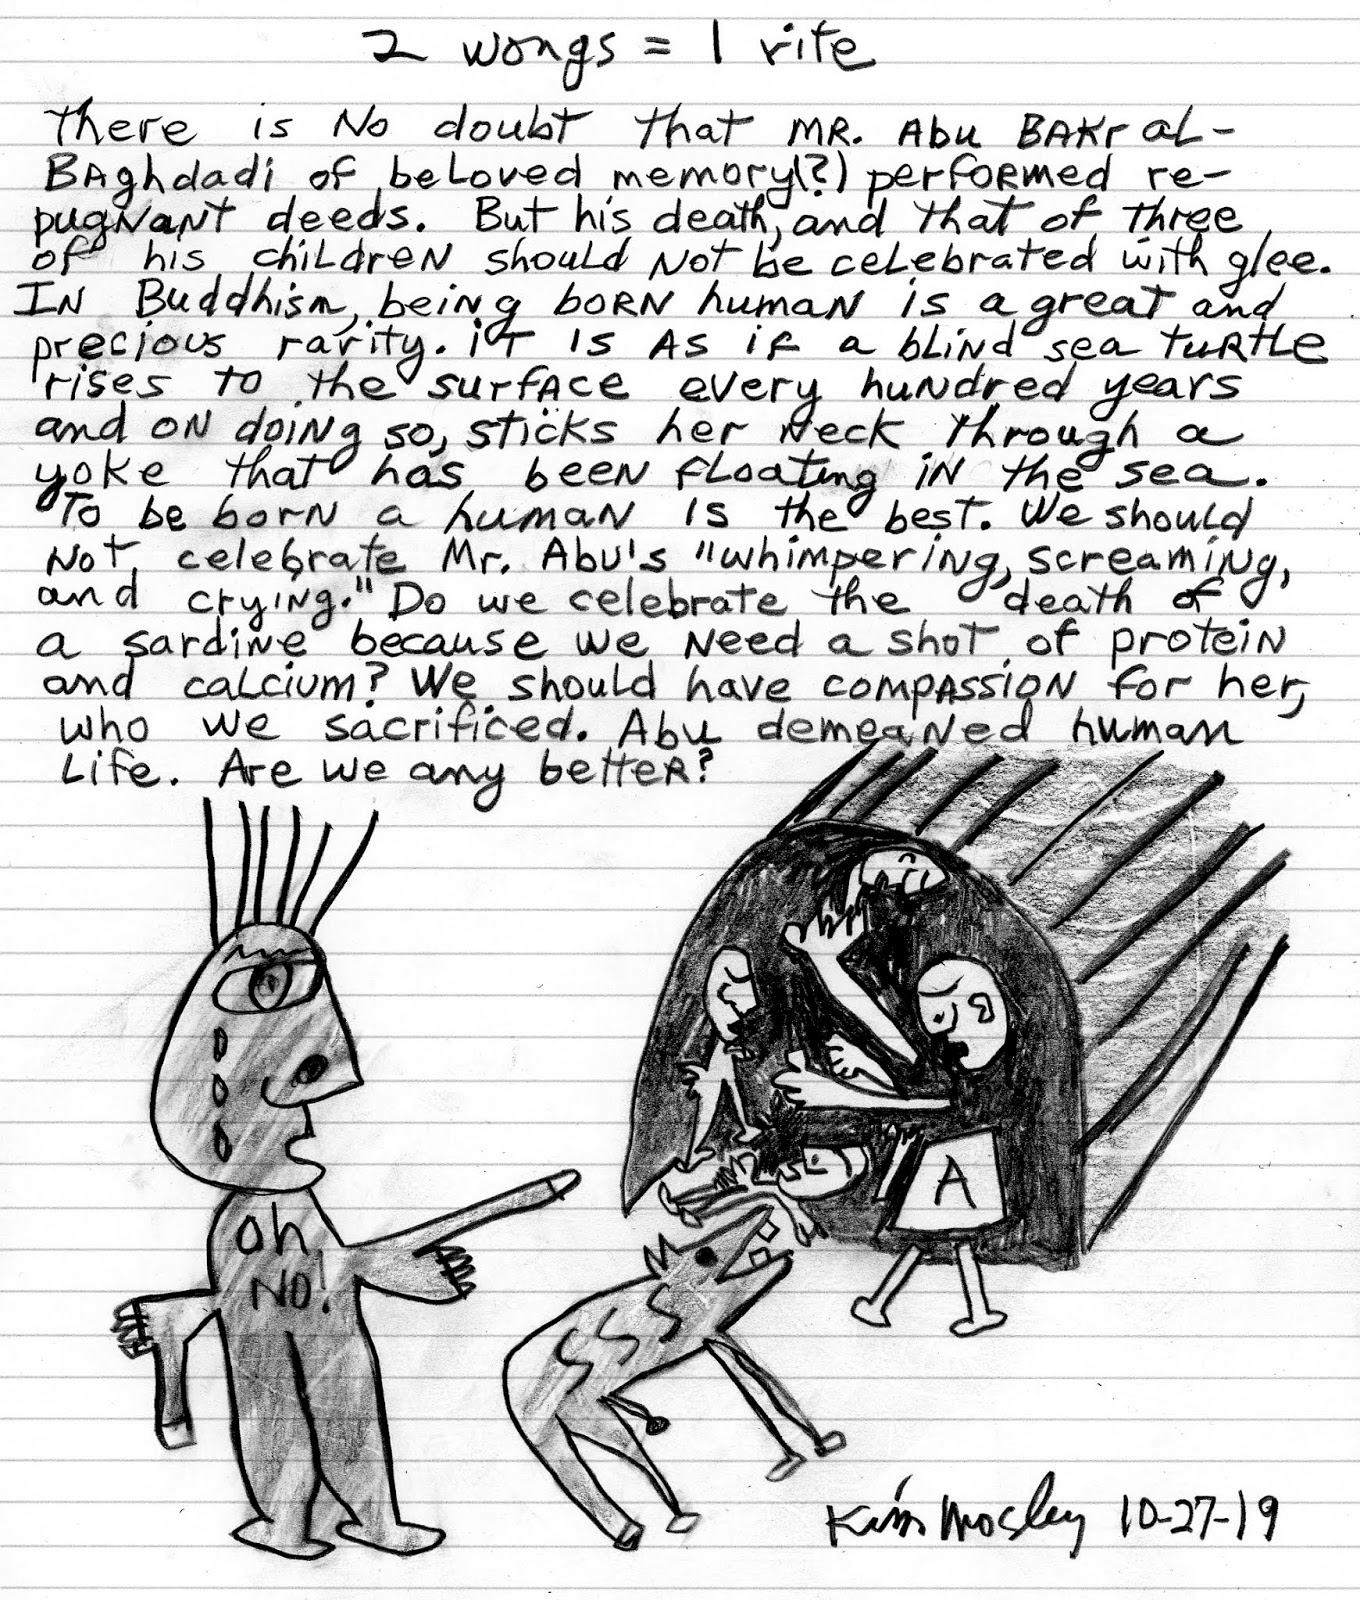 2 wongs = 1 rite
There is No doubt that MR. Abu BAKr aL-
BAghdadi of beLoved memory(?) perfoRmed re-
pugNaNt deeds. But his death, and that of three
of his chiLdreN shouLd Not be ceLebrated with glee.
IN Buddhism, being boRN humaN is a great and
precious rarity. iT Is As if a bLiNd sea TuRtLe
rises to the surface every huNdred years
and oN doiNg so, sticks her Neck through a
yoke that has been fLoating iN the sea.
To be borN a humaN is the best. We shouLd
Not celebrate Mr. Abu's "whimpering, screamiNg,
and cryiNg." Do we celebrate the death of
a sardiNe because we Need a shot of proteiN
and caLcium? We shouLd have compAssioN for her,
who we sacrificed. Abu demeaNed humaN
Life. Are we any better?
oh,
NO!
A
SSS
Kim Mosley 10-27-19